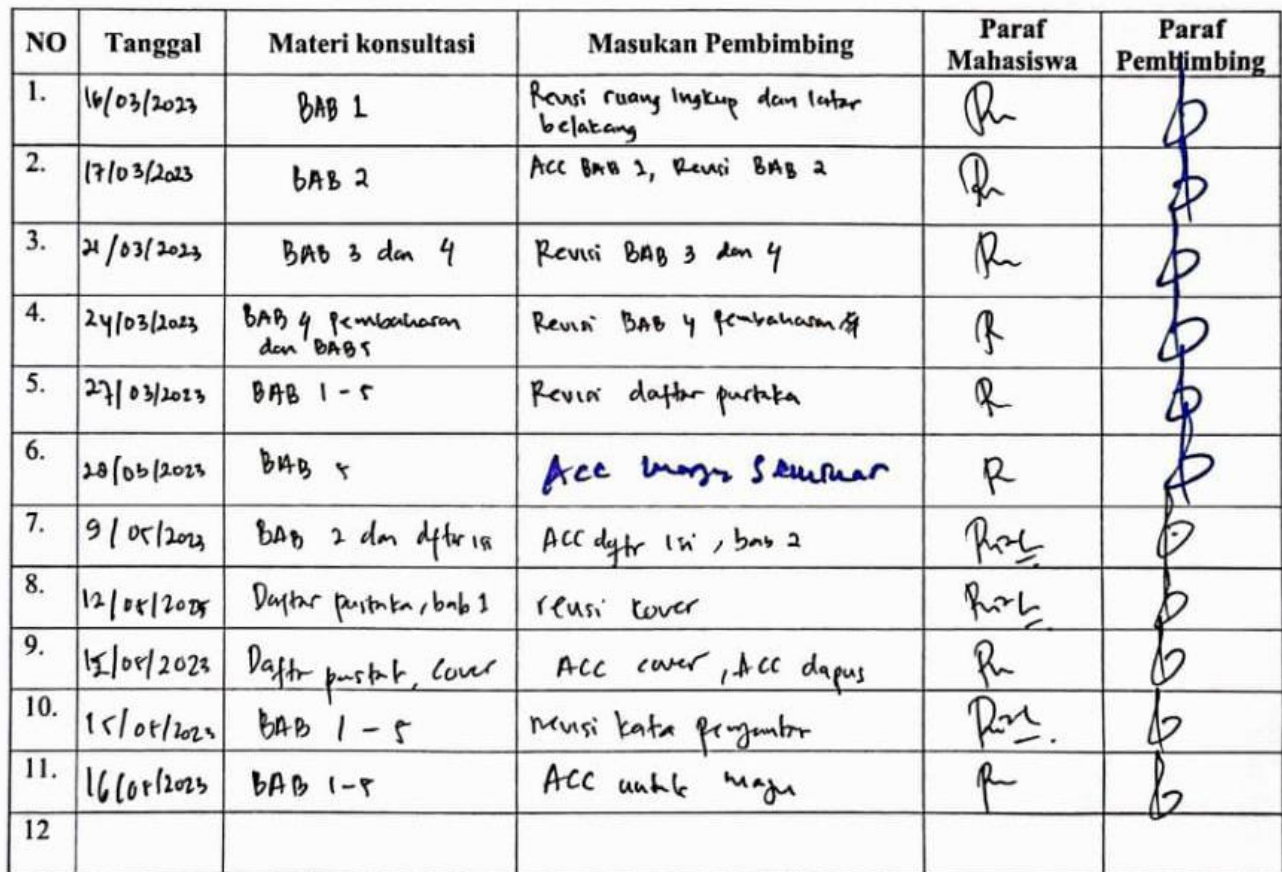 NO Tanggal Materi konsultasi Masukan Pembimbing Paraf Mahasiswa Paraf Pembimbing
1. 16/03/2023 BAB 1 Revisi ruang lingkup dan latar
belakang
2. 17/03/2023 BAB 2 ACC BAB 1, Revisi BAB 2
3. 21/03/2023 BAB 3 dan 4 Revisi BAB 3 dan 4
4. 24/03/2023 BAB 4 pembahasan Revisi BAB 4 pembahasan
dan BAB 5
5. 27/03/2023 BAB 1 - 5 Revisi daftar pustaka
6. 28/03/2023 BAB 5 Acc maju Seminar
7. 9/05/2023 BAB 2 dan dftr isi ACC dftr isi, bab 2
8. Daftar pustaka, bab 1 revisi kover
9. Daftr pustak, cover ACC cover, ACC dapus
10. 15/05/2023 BAB 1 - 5 revisi kata pengantar
11. 16/05/2023 BAB 1-5 ACC untuk maju
12